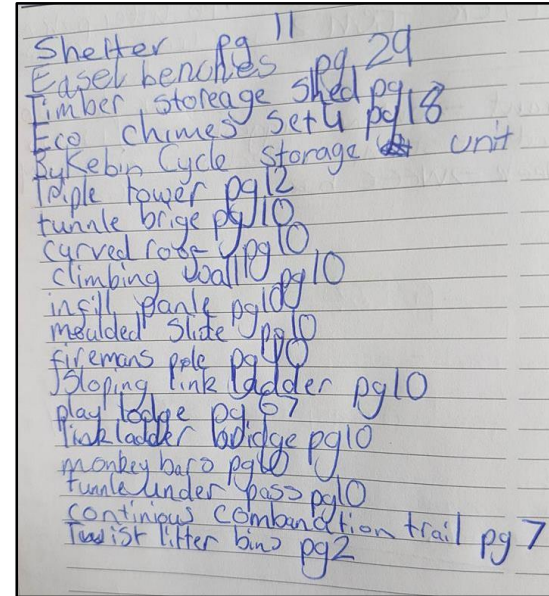 Shelter pg 11
Easel benches pg 29
Timber storeage shed pg
Eco chimes set4 pg18
Bykebin Cycle storage unit
Triple tower pg12
tunnle brige pg10
curved roof pg10
climbing wall pg10
infill panle pg10
moulded slide pg10
firemans pole pg10
Sloping link ladder pg10
play lodge pg 67
link ladder bridge pg10
monkey bars pg10
tunnle under pass pg10
continious combanation trail pg 7
Twist litter bins pg2